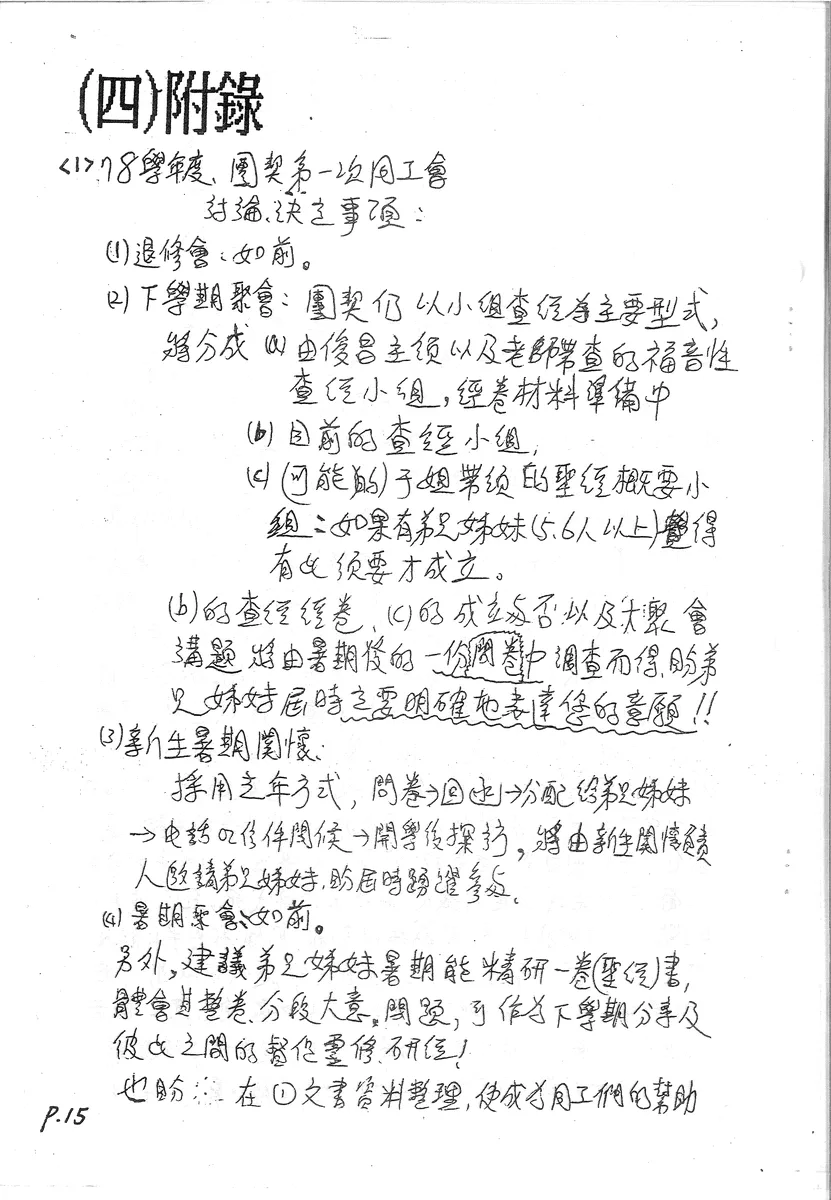 (四)附錄
<1>78學年度、團契第一次同工會
討論、決定事項：
(1)退修會：如前。
(2)下學期聚會：團契仍以小組查經為主要型式,
將分成(a)由俊昌主領以及老師帶查的福音性
查經小組,經卷材料準備中
(b)目前的查經小組,
(c)(可能的)于姐帶領的聖經概要小
組：如果有弟兄姊妹(5.6人以上)覺得
有此須要才成立。
(b)的查經經卷、(c)的成立與否以及大聚會
講題將由暑期後的一份問卷中調查而得,盼弟
兄姊妹屆時定要明確地表達您的意願!!
(3)新生暑期關懷：
採用去年方式,問卷→回函→分配給弟兄姊妹
→電話or信件問候→開學後探訪,將由新生關懷負責
人邀請弟兄姊妹,盼屆時踴躍參與。
(4)暑期聚會：如前。
另外,建議弟兄姊妹暑期能精研一卷(聖經)書,
體會其整卷、分段大意。問題,可作為下學期分享及
彼此之間的督促靈修、研經!
也盼：在①文書資料整理,使成為同工們的幫助
P.15